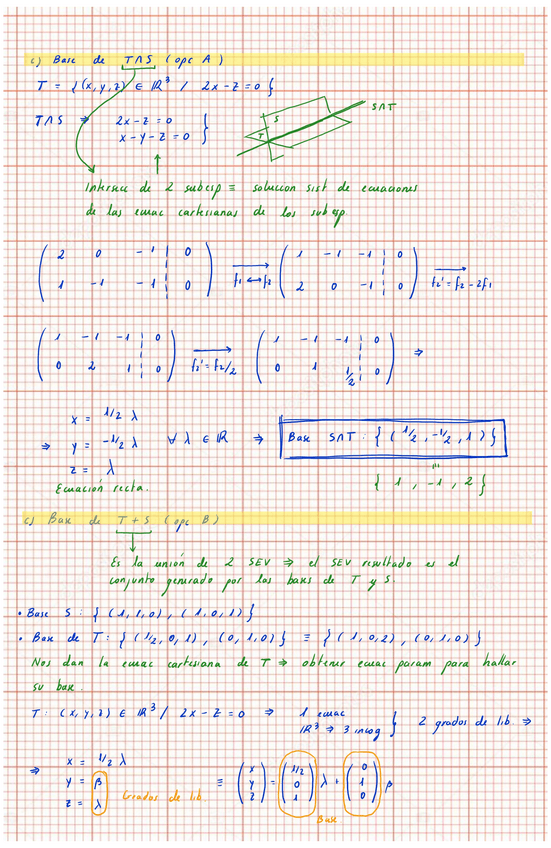 c) Base de T∩S (opc A)
T = {(x,y,z) ∈ ℝ³ / 2x-z=0}
T∩S ⇒ 2x-z=0
x-y-z=0 }
S
T
S∩T
Intersecc de 2 subesp ≡ solucion sist de ecuaciones
de las ecuac cartesianas de los subesp.
( 2 0 -1 | 0 ) f1↔f2 ( 1 -1 -1 | 0 ) f2'=f2-2f1
( 1 -1 -1 | 0 ) ( 2 0 -1 | 0 )
( 1 -1 -1 | 0 ) f2'=f2/2 ( 1 -1 -1 | 0 ) ⇒
( 0 2 1 | 0 ) ( 0 1 1/2 | 0 )
x = 1/2 λ
⇒ y = -1/2 λ ∀ λ ∈ ℝ ⇒ Base S∩T: {(1/2, -1/2, 1)}
z = λ
{ 1, -1, 2 }
Ecuación recta.
c) Base de T+S (opc B)
Es la unión de 2 SEV ⇒ el SEV resultado es el
conjunto generado por las bases de T y S.
• Base S: {(1,1,0), (1,0,1)}
• Base de T: {(1/2,0,1), (0,1,0)} ≡ {(1,0,2), (0,1,0)}
Nos dan la ecuac cartesiana de T ⇒ obtener ecuac param para hallar
su base.
T: (x,y,z) ∈ ℝ³ / 2x-z=0 ⇒ 1 ecuac
ℝ³ ⇒ 3 incog } 2 grados de lib. ⇒
x = 1/2 λ
⇒ y = β ≡ (x y z) = (1/2 0 1) λ + (0 1 0) β
z = λ Grados de lib.
Base